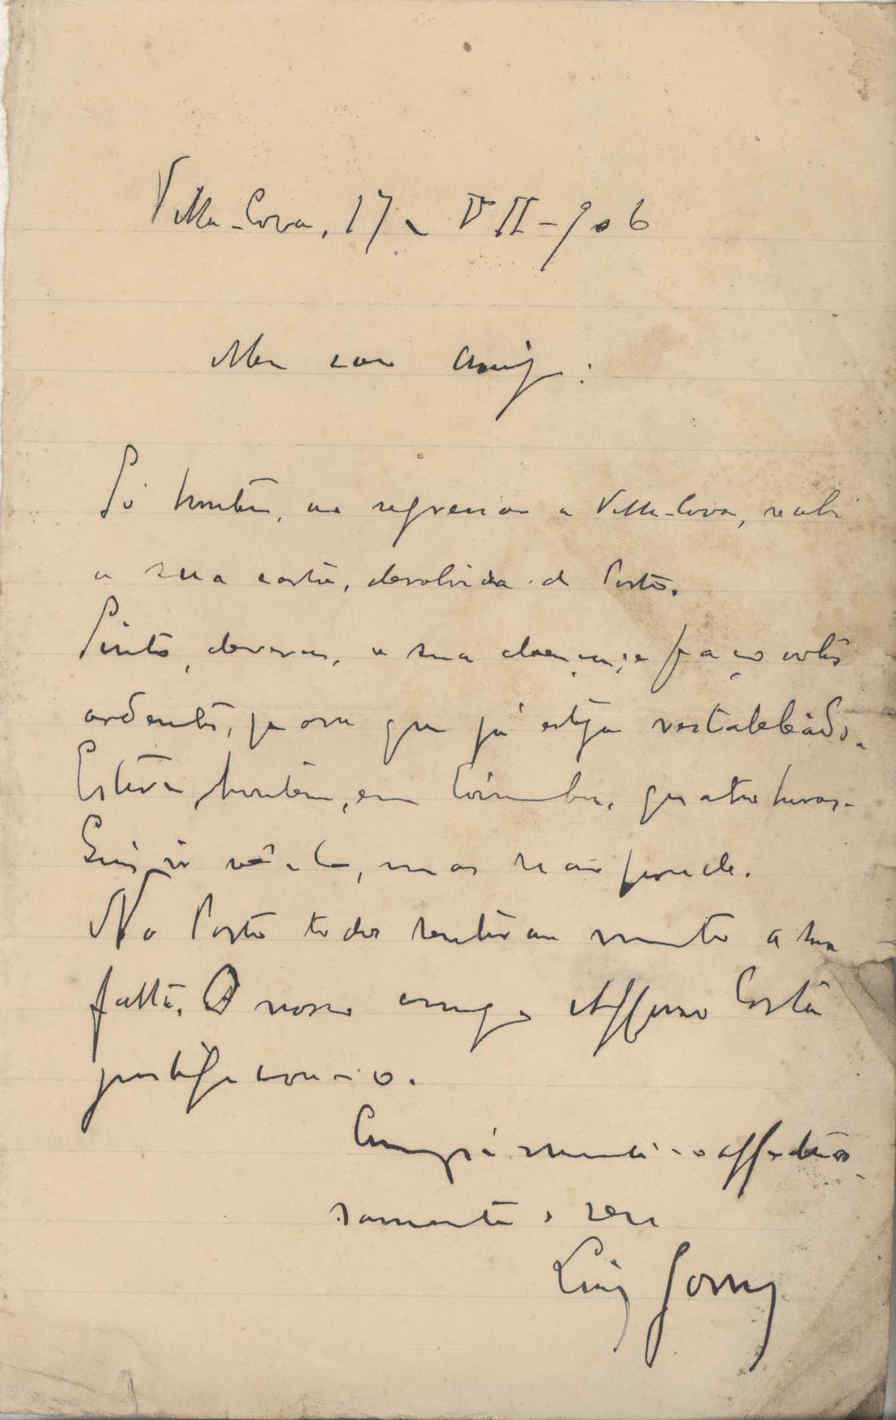 Villa-Cova, 17-VII-906
Meu caro Amigo:
Só hontem, ao regressar a Villa-Cova, recebi
a sua carta, devolvida do Porto.
Sinto, deveras, a sua doença; e faço votos
ardentes, para que já esteja restabelecido.
Estive, hontem, em Coimbra, quatro horas.
Quiz ir vê-lo, mas não pude.
No Porto todos sentiram muito a sua
falta. O nosso amigo Affonso Costa
justificou-o.
Cumprimenta-o affectuo-
samente o seu
Luiz Gomes